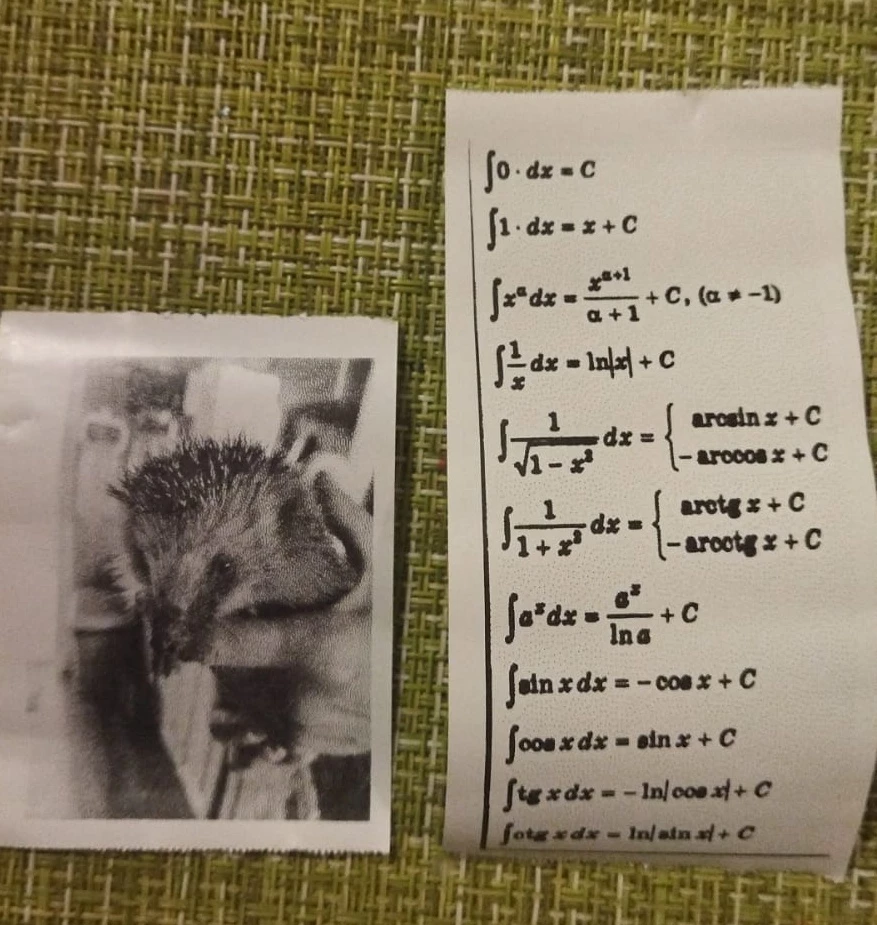 ∫0 · dx = C
∫1 · dx = x + C
∫xᵅ dx = xᵅ⁺¹/(α + 1) + C, (α ≠ −1)
∫1/x dx = ln|x| + C
∫1/√(1 − x²) dx = { arcsin x + C
− arccos x + C
∫1/(1 + x²) dx = { arctg x + C
− arcctg x + C
∫aˣ dx = aˣ/ln a + C
∫sin x dx = − cos x + C
∫cos x dx = sin x + C
∫tg x dx = − ln|cos x| + C
∫ctg x dx = ln|sin x| + C